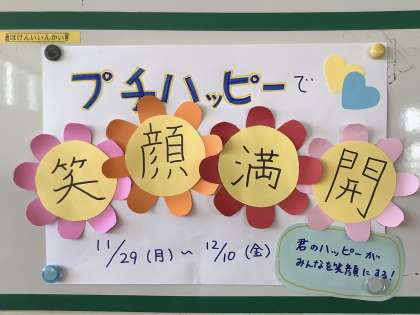 ほけんいいんかい
プチハッピーで
笑顔満開
11/29(月)〜12/10(金)
君のハッピーが
みんなを笑顔にする!